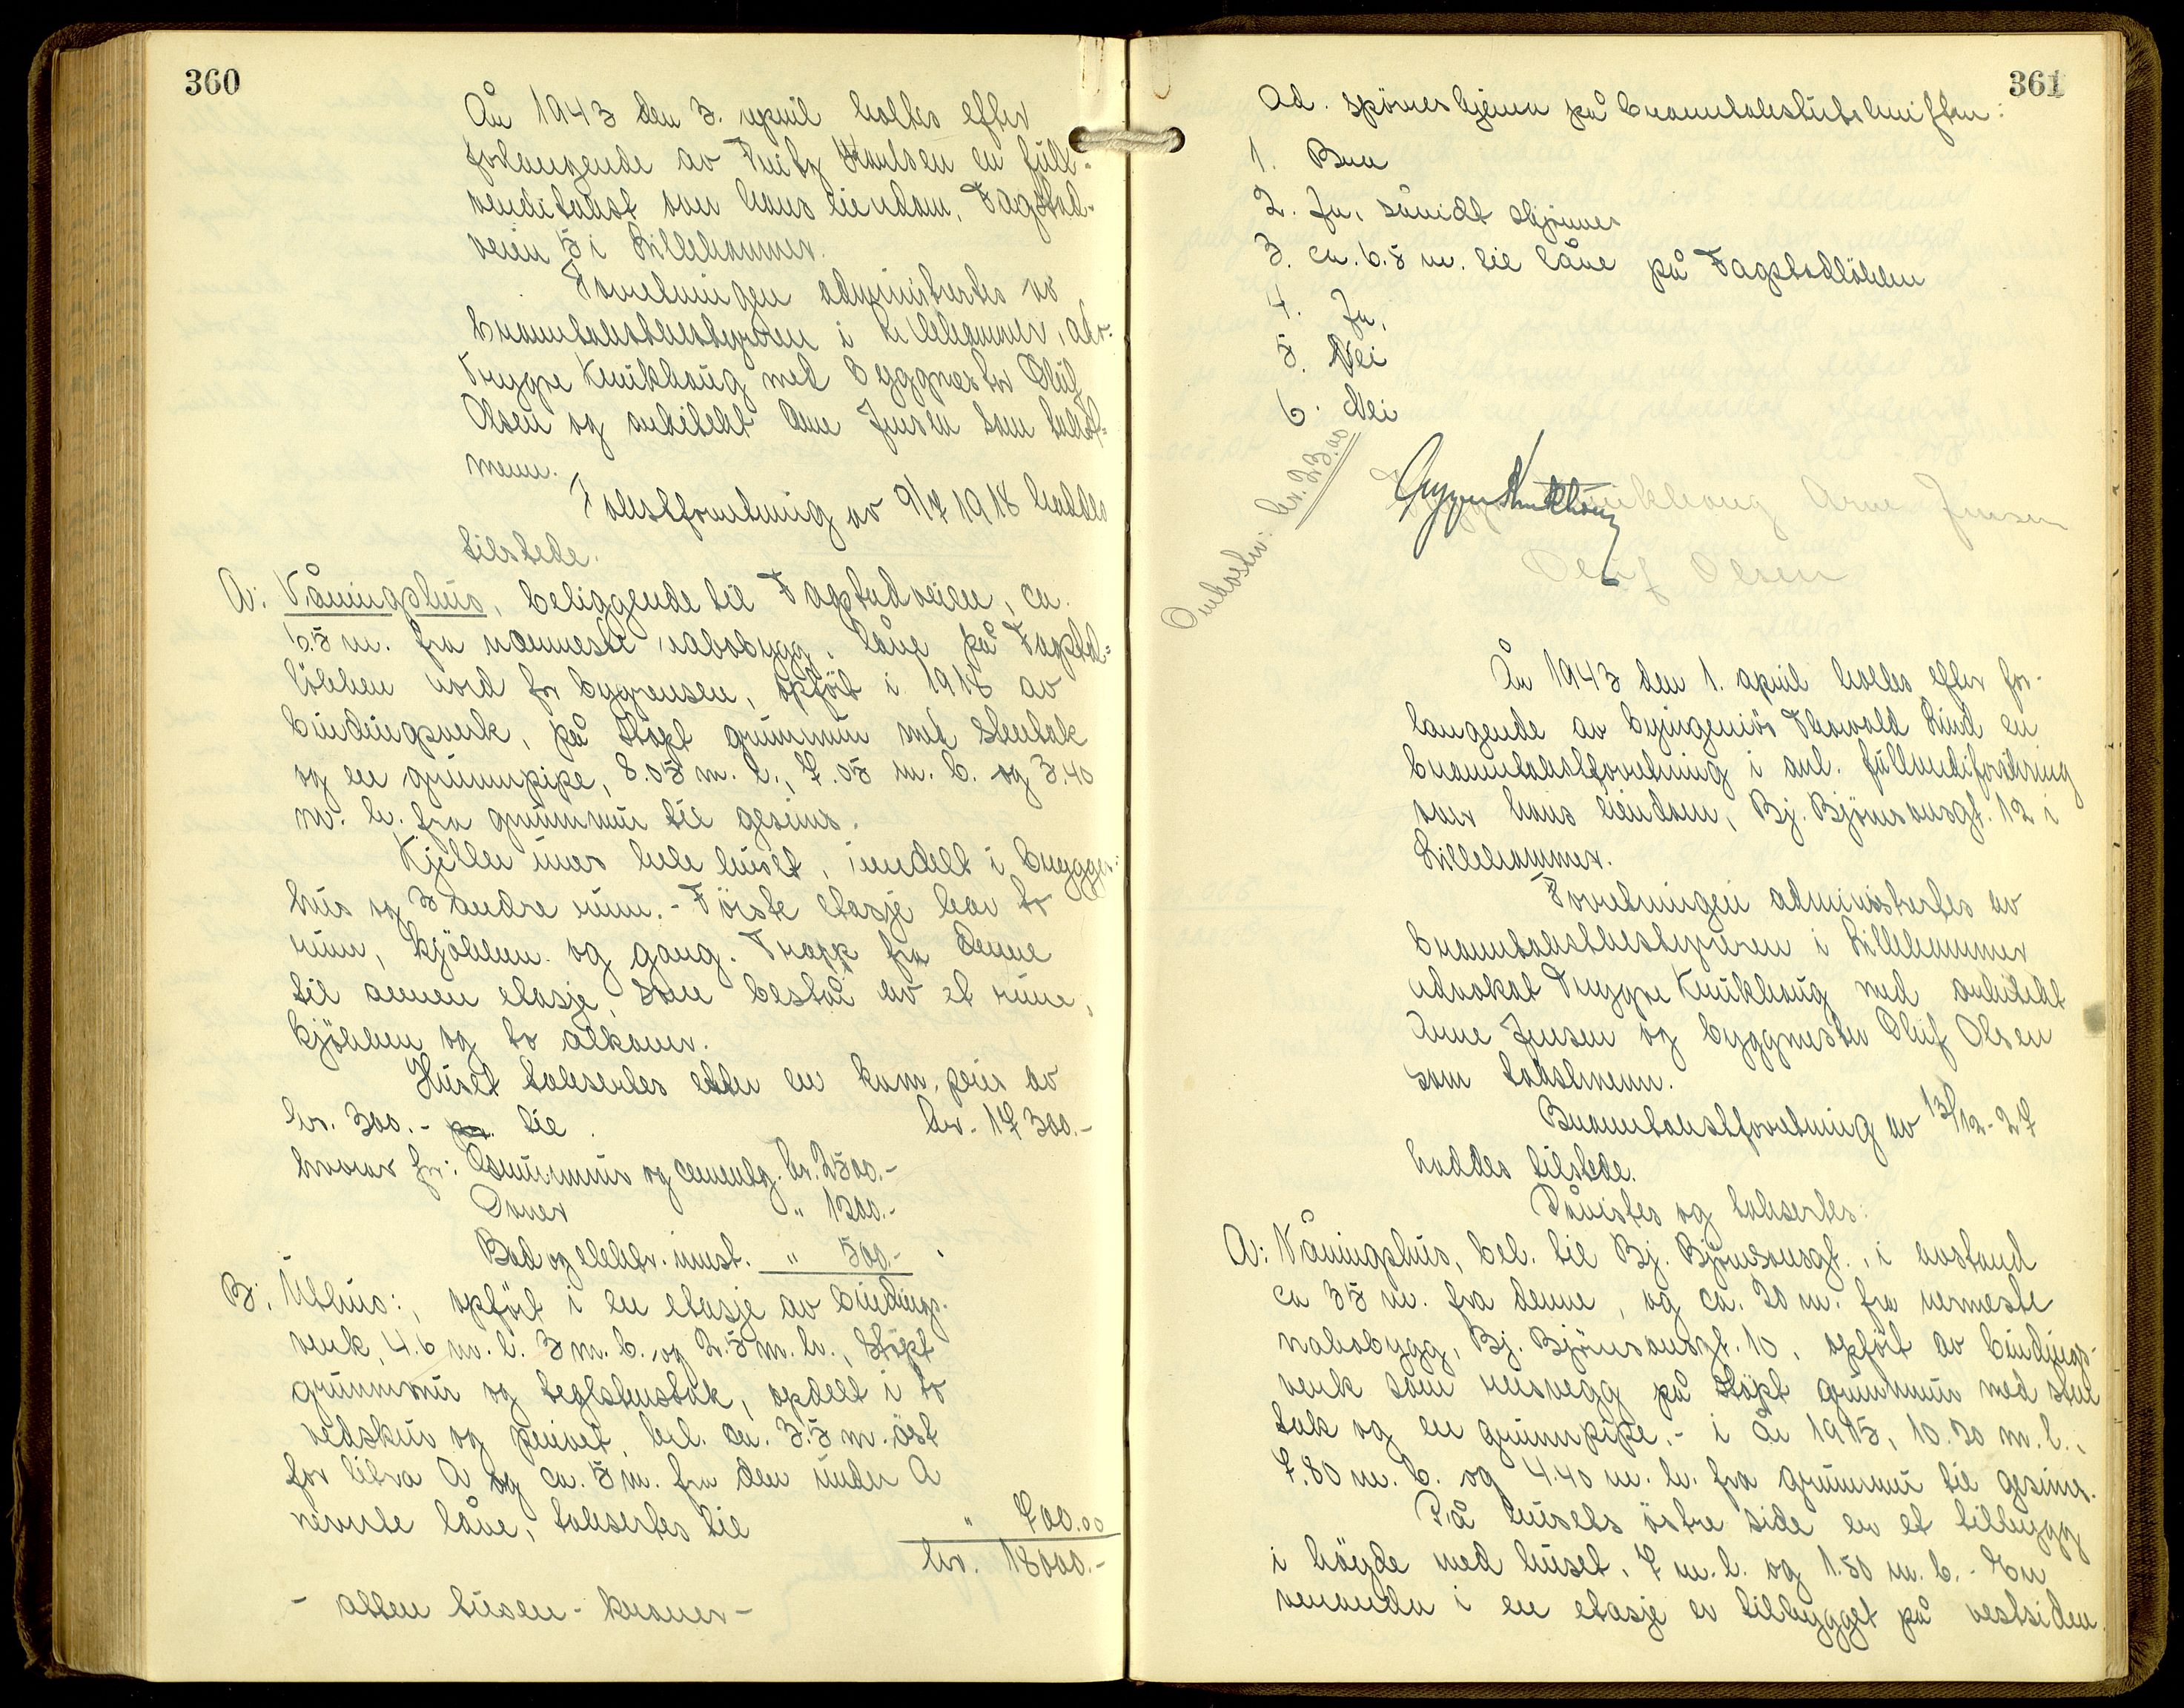 360
År 1943 den 3. april holtes efter
forlangende av Fritz Karlsen en full-
verditakst over hans eiendom, Fagstad-
veien 5 i Lillehammer.
Forretningen administrertes av
branntakstbestyreren i Lillehammer, adv.
Trygve Knikhoug med byggmester Oluf
Olsen og arkitekt Arne Jensen som takst-
menn.
Takstforretning av 9/7 1918 haddes
tilstede.
A: Våningshus, beliggende til Fagstadveien, ca.
6.5 m. fra nærmeste nabobygg. låve på Fagstad-
løkken nord for bygrensen, opført i 1918 av
bindingsverk, på støpt grunnmur med stentak
og en grunnpipe, 8.05 m. l., 7.05 m. b. og 3.40
m. h. fra grunnmur til gesims.
Kjeller under hele huset, inndelt i brygger-
hus og 3 andre rum. - Første etasje har to
rum, kjøkken og gang. Trapp fra denne
til annen etasje, som består av et rum,
kjøkken og to alkover.
Huset takseres etter en kbm. pris av
kr. 300.- pr. til kr. 17300.-
hvorav for: Grunnmur og cementg. kr. 2500.-
Ovner " 1200.-
Bad og elektr. innst. " 500.-
B: Uthus:, opført i en etasje av bindings-
verk, 4.6 m. l. 3 m. b. og 2.5 m. h., støpt
grunnmur og teglstenstak, opdelt i to
vedskur og privet, bel. ca. 3.5 m. øst
for litra A og ca. 5 m. fra den under A
nevnte låve, takseres til " 700.00
kr. 18000.-
- atten tusen - kroner -
361
Ad. spørreskjema på branntakstutskriften:
1. Bra
2. Ja, såvidt skjønnes
3. ca. 6.5 m. til låve på Fagstadløkken
4. Ja.
5. Nei
6. Nei
Omkostn: kr. 23.00
Trygve Knikhoug Arne Jensen
Oluf Olsen
År 1943 den 1. april holtes efter for-
langende av byingeniør Thorvald Lind en
branntakstforretning i anl. fullverdiforsikring
over hans eiendom, Bj. Bjørnsonsgt. 12 i
Lillehammer.
Forretningen administrertes av
branntakstbestyreren i Lillehammer
advokat Trygve Knikhoug med arkitekt
Arne Jensen og byggmester Oluf Olsen
som takstmenn.
Branntakstforretning av 13/12-27
haddes tilstede.
Påvistes og taksertes:
A: Våningshus, bel. til Bj. Bjørnsonsgt., i avstand
ca 35 m. fra denne, og ca. 20 m. fra nermeste
nabobygg, Bj. Bjørnsonsgt. 10, opført av bindings-
verk som reisvegg på støpt grunnmur med sten
tak og en grunnpipe. - i år 1915, 10.20 m. l.,
7.80 m. b. og 4.40 m. h. fra grunnmur til gesims.
På husets østre side er et tilbygg
i høyde med huset, 7 m. l. og 1.50 m. b. - En
veranda i en etasje er tilbygget på vestsiden.